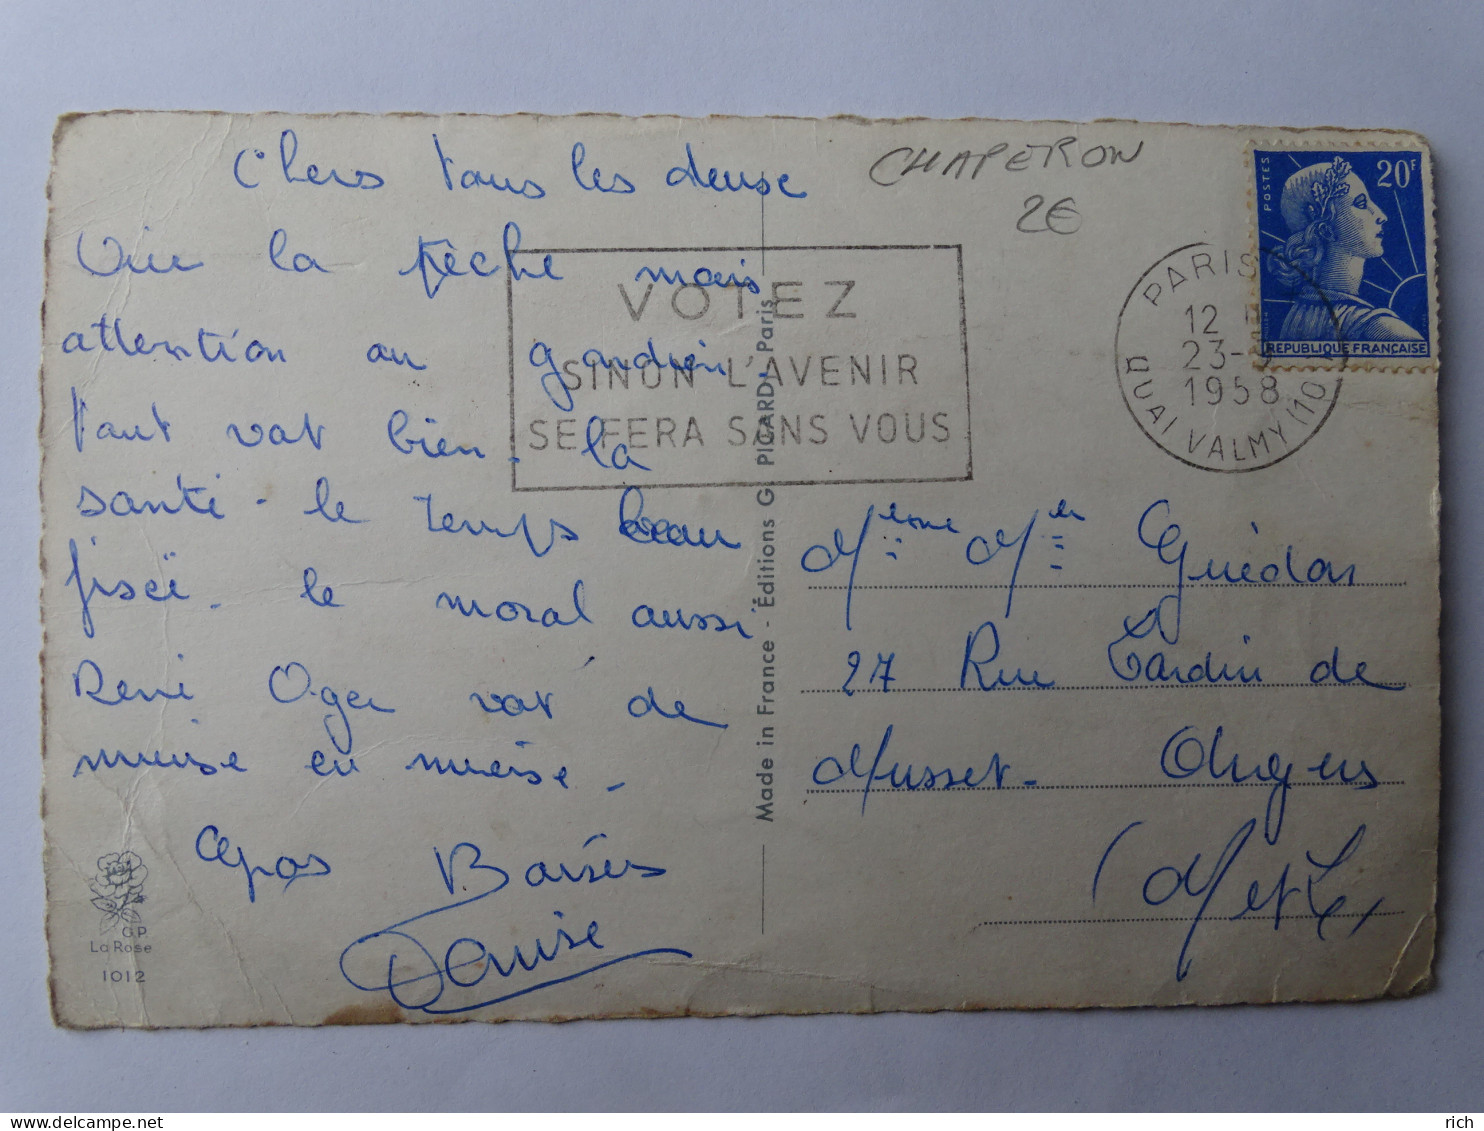 Chers tous les deuse
Vive la pèche mais
attention au gardien
tout vat bien - la
santé - le temps beau
fiscé - le moral aussi
René Oger vat de
mieuse en mieuse -
Gros Baisers
Denise
CHAPERON
2€
POSTES
20F
REPUBLIQUE FRANÇAISE
PARIS
12 H
23-
1958
QUAI VALMY (10
VOTEZ
SINON L'AVENIR
SE FERA SANS VOUS
Made in France - Éditions G. PICARD, Paris
Mr et Mme Guédon
27 Rue Tardin de
Musset - Angers
(M et L)
G.P.
La Rose
1012
rich